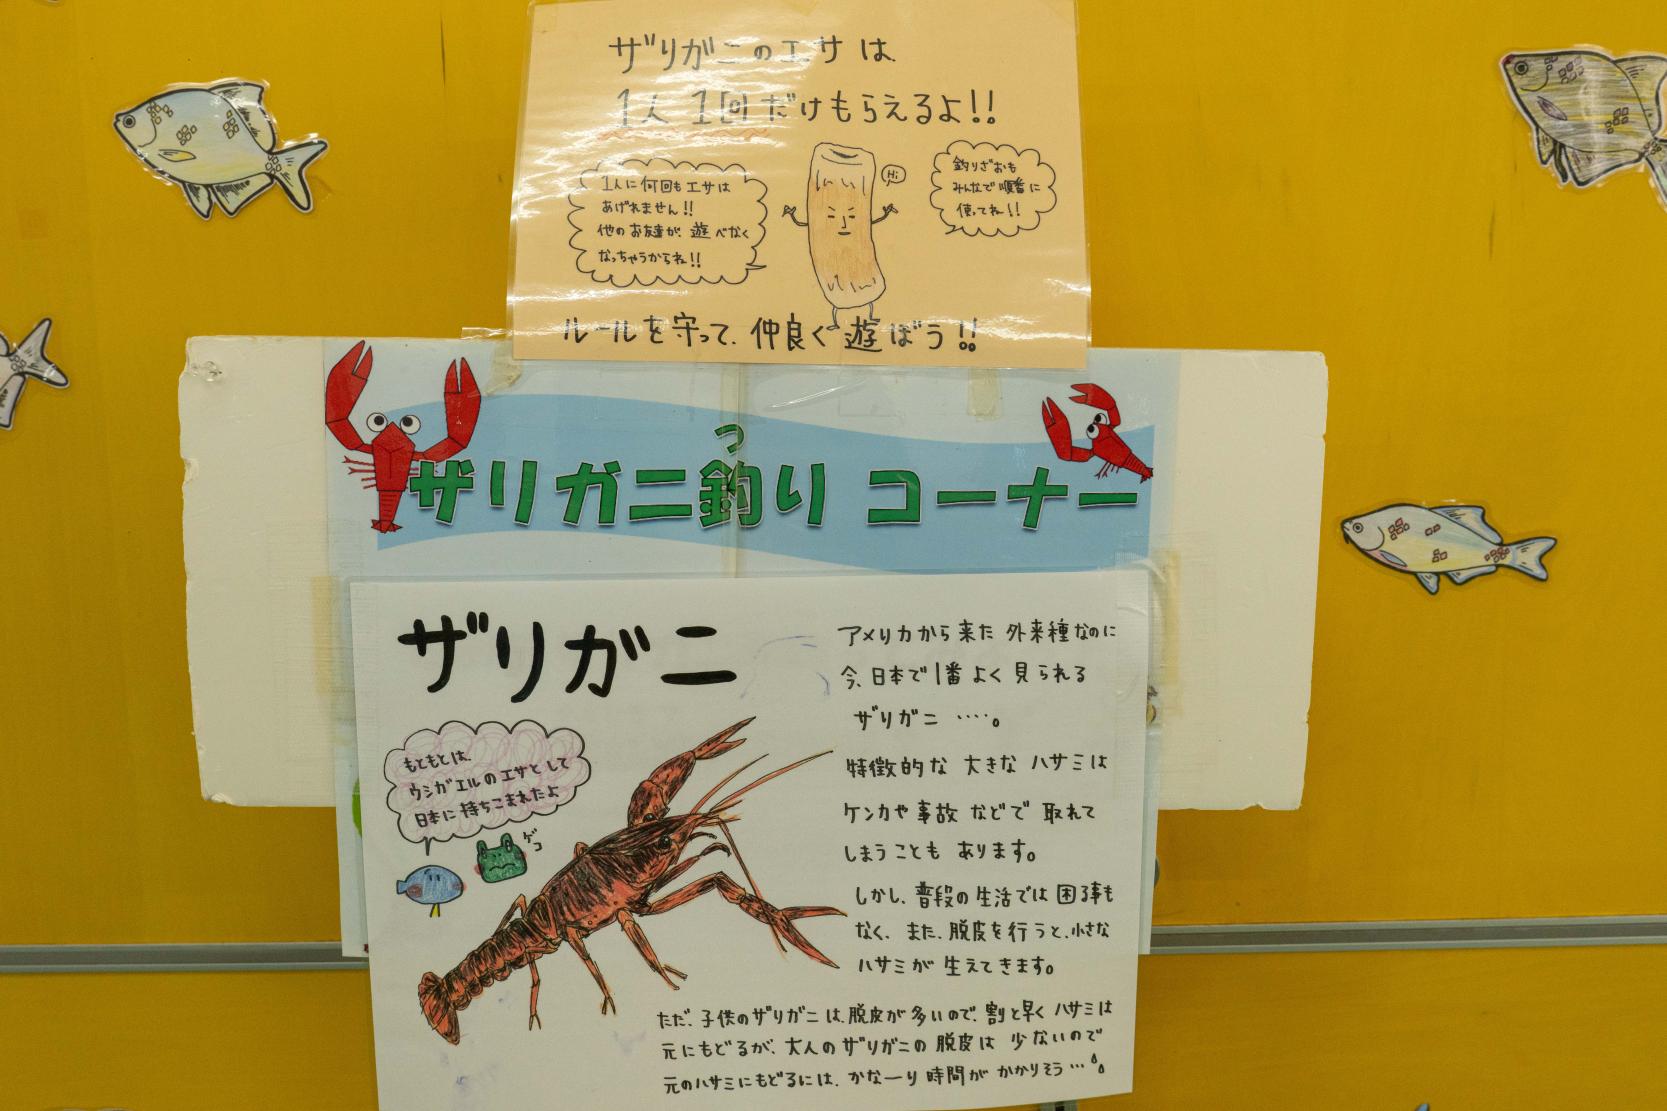 ザリガニのエサは
1人1回だけもらえるよ!!
1人に何回もエサは
あげれません!!
他のお友達が、遊べなく
なっちゃうからね!!
Hi
釣りざおも
みんなで順番に
使ってね!!
ルールを守って、仲良く遊ぼう!!
つ
ザリガニ釣りコーナー
ザリガニ
もともとは、
ウシガエルのエサとして
日本に持ちこまれたよ
ゲコ
アメリカから来た外来種なのに
今、日本で1番よく見られる
ザリガニ ‥‥。
特徴的な大きなハサミは
ケンカや事故などで取れて
しまうこともあります。
しかし、普段の生活では困る事も
なく、また、脱皮を行うと、小さな
ハサミが生えてきます。
ただ、子供のザリガニは、脱皮が多いので、割と早くハサミは
元にもどるが、大人のザリガニの脱皮は少ないので
元のハサミにもどるには、かな〜り時間がかかりそう…